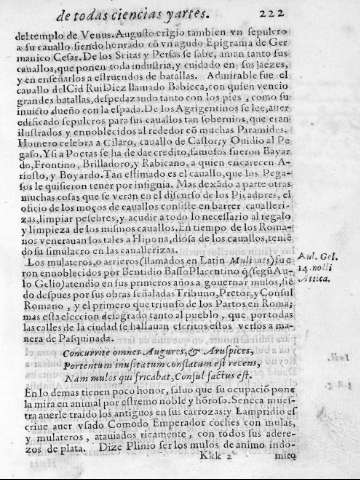 de todas ciencias y artes. 222
del templo de Venus. Augusto erigio tambien vn sepulcro
a su cauallo siendo honrado cō vn agudo Epigrama de Ger
manico Cesar. De los Scitas y Persas se sabe, aman tanto sus
cauallos, que ponen toda industria, y cuidado en sus jaezes,
y en enseñarlos a estruendos de batallas. Admirable fue el
cauallo del Cid Rui Diez llamado Babieca, con quien vencio
grandes batallas, despedaçando tanto con los pies, como su
inuicto dueño con la espada. De los Agrigentinos se lee, auer
edificado sepulcros para sus cauallos tan soberuios, que eran
ilustrados y ennoblecidos al rededor cō muchas Paramides.
Homero celebra a Cilaro, cauallo de Castor, y Ouidio al Pe
gaso. Y si a Poetas se ha de dar credito, famosos fueron Bayar
do, Frontino, Brilladoro, y Rabicano, a quien encarecen A-
riosto, y Boyardo. Tan estimado es el cauallo, que los Pega-
sos le quisieron tener por insignia. Mas dexādo a parte otras
muchas cosas que se veran en el discurso de los Picadores, el
oficio de los moços de cauallos consiste en barrer caualleri-
zas, limpiar pesebres, y acudir a todo lo necessario al regalo
y limpieza de los mismos cauallos. En tiempo de los Roma-
nos venerauan los tales a Hipona, diosa de los cauallos, tenié
do su simulacro en las cauallerizas.
Los mulateros, o arrieros (llamados en Latin Muliares) fue
ron ennoblecidos por Bentidio Basso Placentino q̄ (segū Au-
lo Gelio) atendio en sus primeros años a gouernar mulos, siē
do despues por sus obras señaladas Tribuno, Pretor, y Consul
Romano, y el primero que triunfo de los Partos en Roma;
mas esta eleccion desagrado tanto al pueblo, que por todas
las calles de la ciudad se hallauan escritos estos versos a mane
ra de Pasquinada.
Aul. Gel.
14. nocti
Attica.
Concurrite omnes Augures, & Aruspices,
Portentum inusitatum conflatum est recens,
Nam mulos qui fricabat, Consul factus est.
En lo demas tienen poco honor, saluo que su ocupaciō pone
la mira en animal por estremo noble y hōroso. Seneca mues-
tra auerle traido los antiguos en sus carrozas: y Lampridio es
criue auer vsado Comodo Emperador coches con mulas,
y mulateros, atauiados ricamente, con todos sus adere-
zos de plata. Dize Plinio ser los mulos de animo indo-
Kkk 2 mito